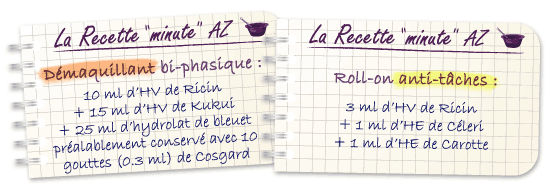 La Recette "minute" AZ
Démaquillant bi-phasique :
10 ml d'HV de Ricin
+ 15 ml d'HV de Kukui
+ 25 ml d'hydrolat de bleuet
préalablement conservé avec 10
gouttes (0.3 ml) de Cosgard
La Recette "minute" AZ
Roll-on anti-tâches :
3 ml d'HV de Ricin
+ 1 ml d'HE de Céleri
+ 1 ml d'HE de Carotte